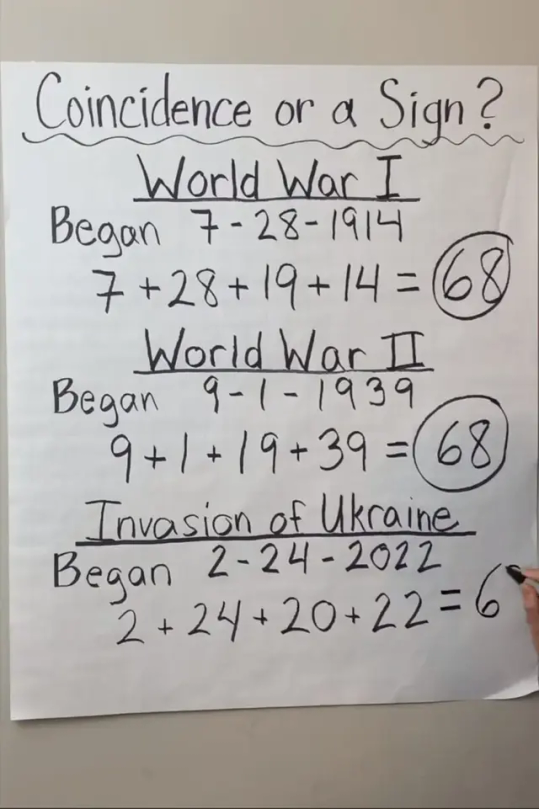 Coincidence or a Sign?
World War I
Began 7-28-1914
7+28+19+14 = 68
World War II
Began 9-1-1939
9+1+19+39 = 68
Invasion of Ukraine
Began 2-24-2022
2+24+20+22 = 6